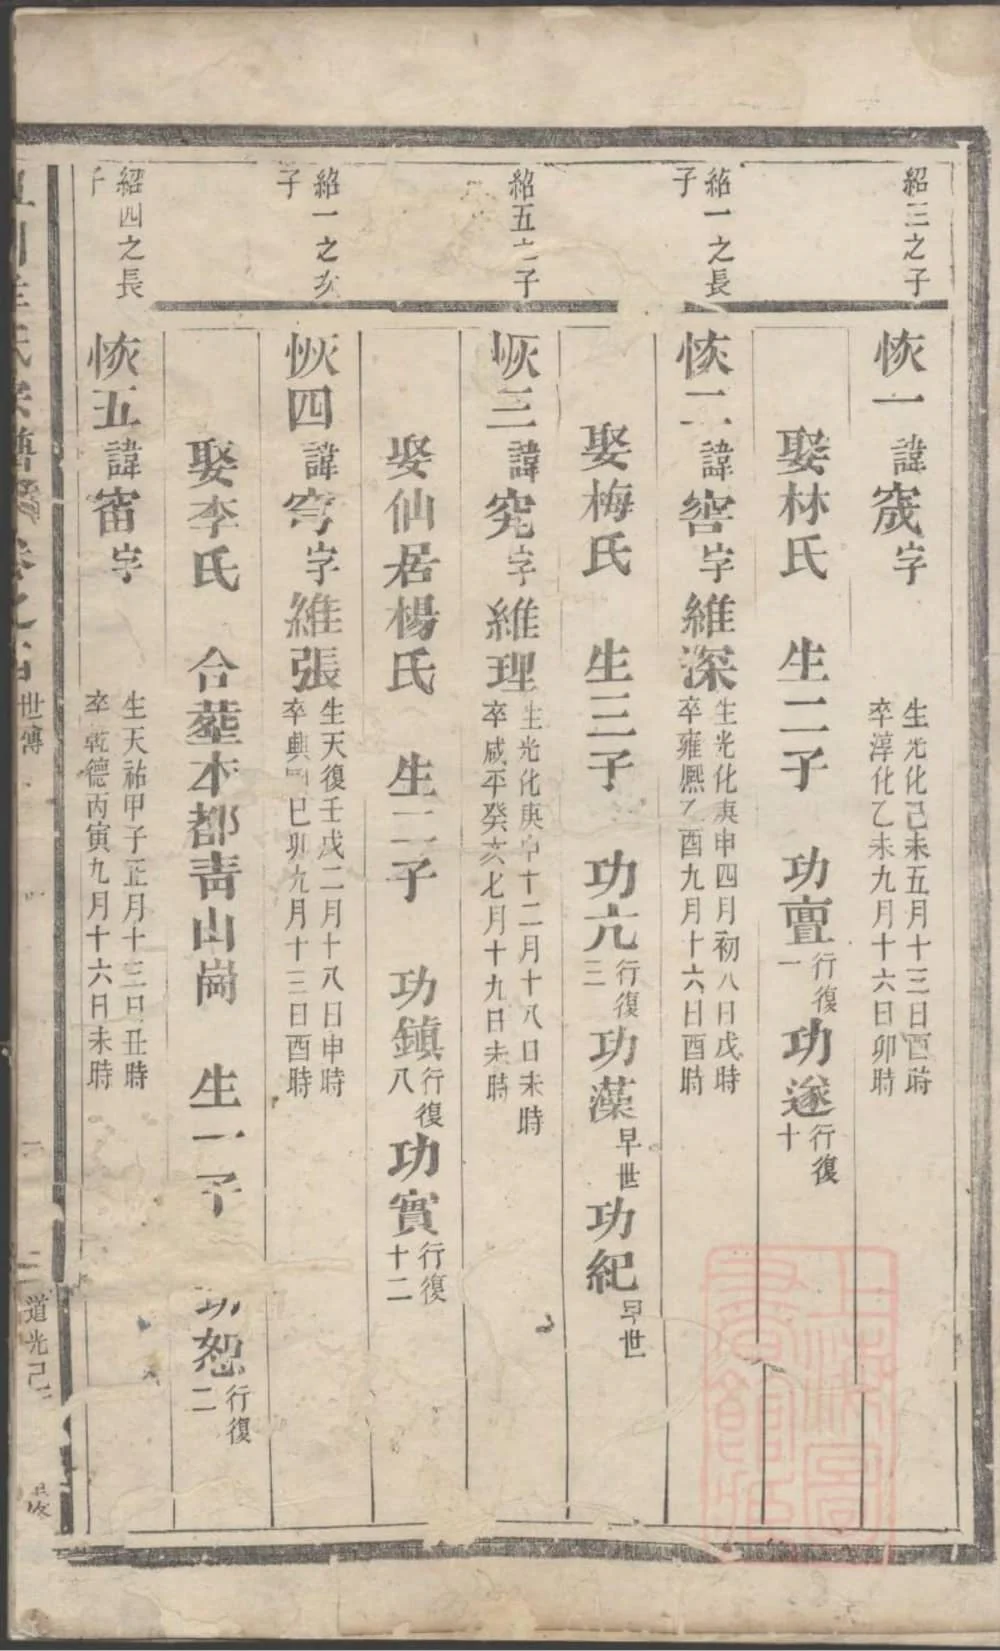 紹三之子
恢一諱宬字
生光化己未五月十三日酉時
卒淳化乙未九月十六日卯時
娶林氏 生二子 功亶行復一 功遂行復十
紹一之長子
恢二諱窖字維深
生光化庚申四月初八日戊時
卒雍熙乙酉九月十六日酉時
娶梅氏 生三子 功亢行復三 功藻早世 功紀早世
紹五之子
恢三諱究字維理
生光化庚申十二月十八日未時
卒咸平癸亥七月十九日未時
娶仙居楊氏 生二子 功鎮行復八 功實行復十二
紹一之次子
恢四諱穹字維張
生天復壬戌二月十八日申時
卒興國己卯九月十三日酉時
娶李氏 合塟本都靑山崗 生一子 功恕行復二
紹四之長子
恢五諱宙字
生天祐甲子正月十三日丑時
卒乾德丙寅九月十六日未時
氏宗譜 卷之首 世傳 道光己